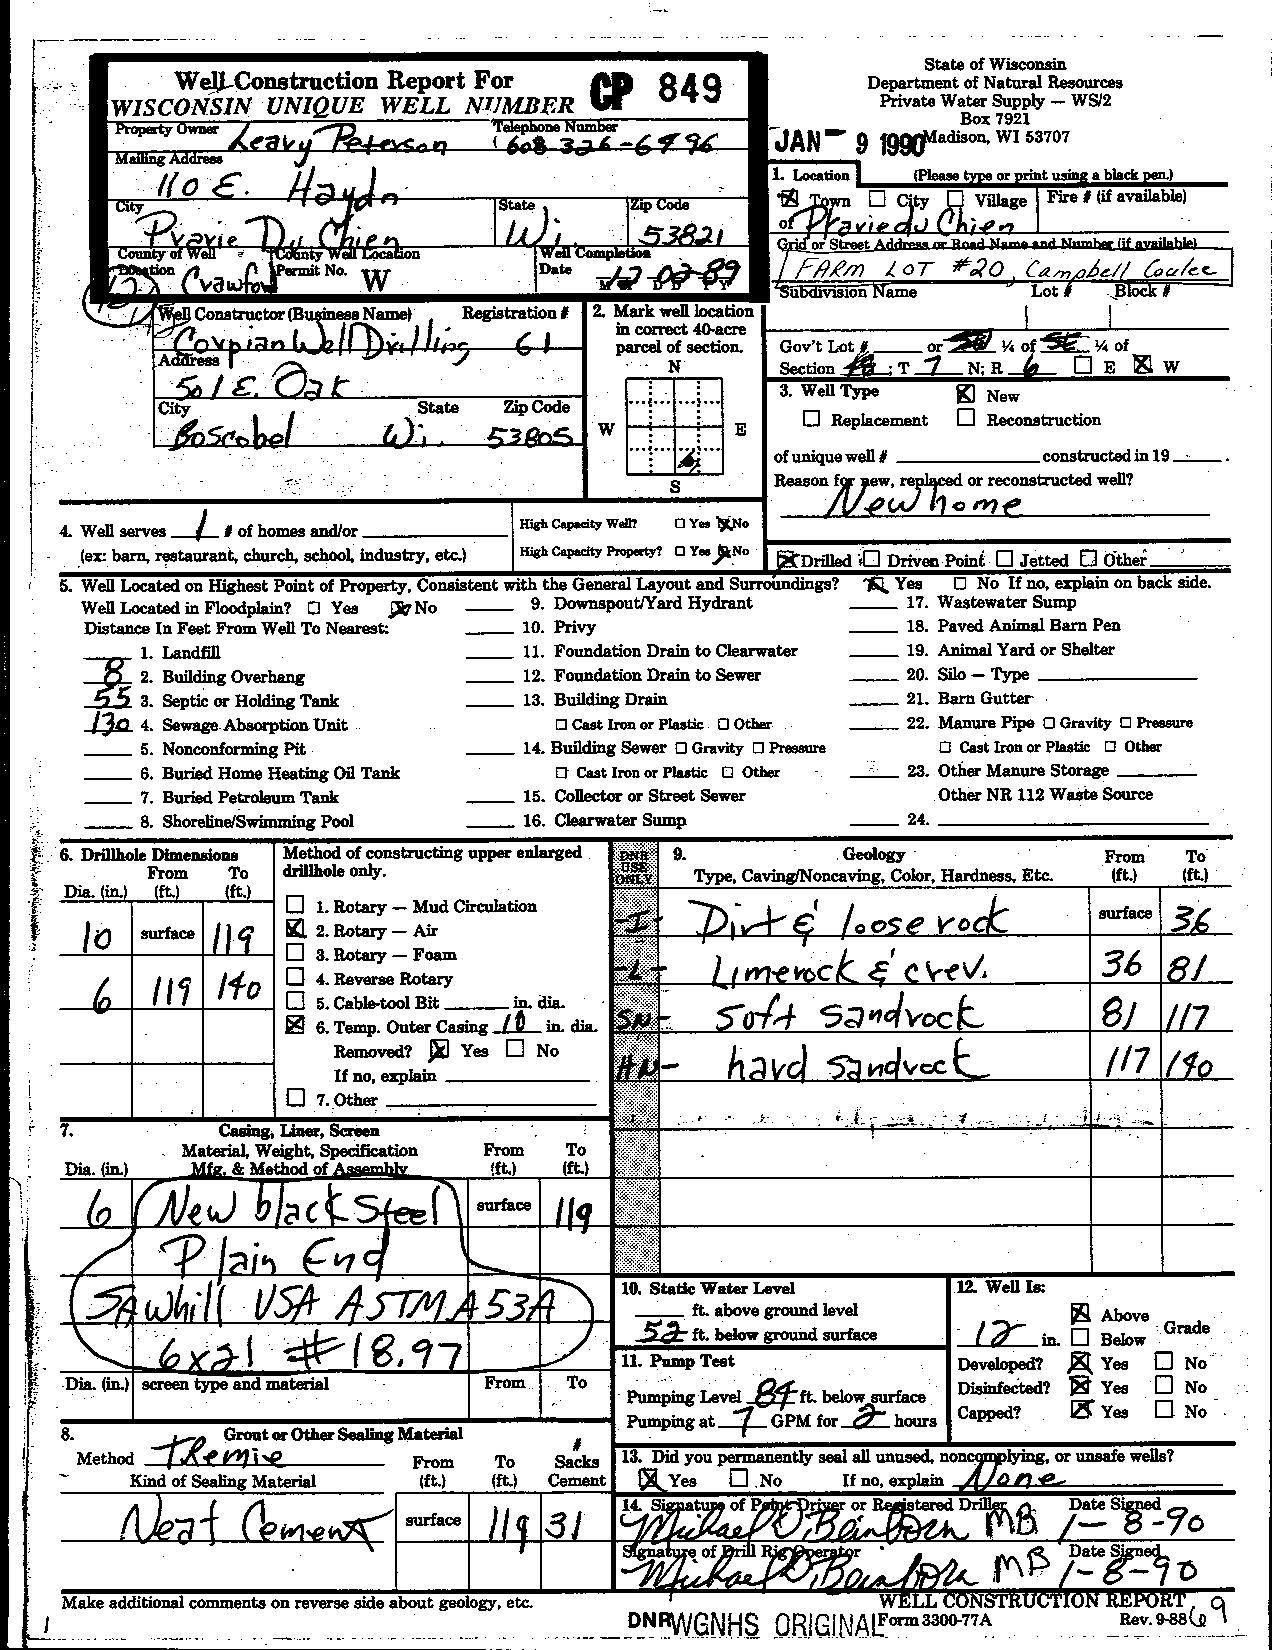 Well Construction Report For
WISCONSIN UNIQUE WELL NUMBER CP 849
State of Wisconsin
Department of Natural Resources
Private Water Supply — WS/2
Box 7921
Madison, WI 53707
JAN - 9 1990
Property Owner Leavy Peterson Telephone Number (608 326-6496
Mailing Address
110 E. Haydn
City State Zip Code
Pravie Du Chien Wi 53821
County of Well Location County Well Location Permit No. W Well Completion Date
12 Crawford 12 02 89
M M D D Y Y
1. Location (Please type or print using a black pen.)
☒ Town ☐ City ☐ Village Fire # (if available)
of Pravie du Chien
Grid or Street Address or Road Name and Number (if available)
FARM LOT #20, Campbell Coulee
Subdivision Name Lot # Block #
Gov't Lot # or ¼ of SE ¼ of
Section ; T 7 N; R 6 ☐ E ☒ W
Well Constructor (Business Name) Registration #
Corpian Well Drilling 61
Address
501 E. Oak
City State Zip Code
Boscobel Wi. 53805
2. Mark well location
in correct 40-acre
parcel of section.
N
W E
S
3. Well Type ☒ New
☐ Replacement ☐ Reconstruction
of unique well # constructed in 19 .
Reason for new, replaced or reconstructed well?
New home
☒ Drilled ☐ Driven Point ☐ Jetted ☐ Other
4. Well serves 1 # of homes and/or
(ex: barn, restaurant, church, school, industry, etc.)
High Capacity Well? ☐ Yes ☒ No
High Capacity Property? ☐ Yes ☒ No
5. Well Located on Highest Point of Property, Consistent with the General Layout and Surroundings? ☒ Yes ☐ No If no, explain on back side.
Well Located in Floodplain? ☐ Yes ☒ No
Distance In Feet From Well To Nearest:
1. Landfill
8 2. Building Overhang
55 3. Septic or Holding Tank
130 4. Sewage Absorption Unit
5. Nonconforming Pit
6. Buried Home Heating Oil Tank
7. Buried Petroleum Tank
8. Shoreline/Swimming Pool
9. Downspout/Yard Hydrant
10. Privy
11. Foundation Drain to Clearwater
12. Foundation Drain to Sewer
13. Building Drain
☐ Cast Iron or Plastic ☐ Other
14. Building Sewer ☐ Gravity ☐ Pressure
☐ Cast Iron or Plastic ☐ Other
15. Collector or Street Sewer
16. Clearwater Sump
17. Wastewater Sump
18. Paved Animal Barn Pen
19. Animal Yard or Shelter
20. Silo — Type
21. Barn Gutter
22. Manure Pipe ☐ Gravity ☐ Pressure
☐ Cast Iron or Plastic ☐ Other
23. Other Manure Storage
Other NR 112 Waste Source
24.
6. Drillhole Dimensions
From To
Dia. (in.) (ft.) (ft.)
10 surface 119
6 119 140
Method of constructing upper enlarged
drillhole only.
☐ 1. Rotary — Mud Circulation
☒ 2. Rotary — Air
☐ 3. Rotary — Foam
☐ 4. Reverse Rotary
☐ 5. Cable-tool Bit in. dia.
☒ 6. Temp. Outer Casing 10 in. dia.
Removed? ☒ Yes ☐ No
If no, explain
☐ 7. Other
DNR
USE
ONLY
9. Geology From To
Type, Caving/Noncaving, Color, Hardness, Etc. (ft.) (ft.)
-I- Dirt & loose rock surface 36
-L- Limerock & crev. 36 81
SN- Soft Sandrock 81 117
HN- hard Sandrock 117 140
7. Casing, Liner, Screen
Material, Weight, Specification From To
Dia. (in.) Mfg. & Method of Assembly (ft.) (ft.)
6 New black Steel surface 119
Plain End
SAwhill USA ASTM A53A
6x21 #18.97
Dia. (in.) screen type and material From To
8. Grout or Other Sealing Material
Method TRemie From To # Sacks
Kind of Sealing Material (ft.) (ft.) Cement
Neat Cement surface 119 31
10. Static Water Level
ft. above ground level
52 ft. below ground surface
11. Pump Test
Pumping Level 84 ft. below surface
Pumping at 7 GPM for 2 hours
12. Well Is:
12 in. ☒ Above ☐ Below Grade
Developed? ☒ Yes ☐ No
Disinfected? ☒ Yes ☐ No
Capped? ☒ Yes ☐ No
13. Did you permanently seal all unused, noncomplying, or unsafe wells?
☒ Yes ☐ No If no, explain None
14. Signature of Point Driver or Registered Driller Date Signed
Michael D. Beinborn MB 1-8-90
Signature of Drill Rig Operator Date Signed
Michael D. Beinborn MB 1-8-90
Make additional comments on reverse side about geology, etc.
WELL CONSTRUCTION REPORT
DNR WGNHS ORIGINAL Form 3300-77A Rev. 9-88
9